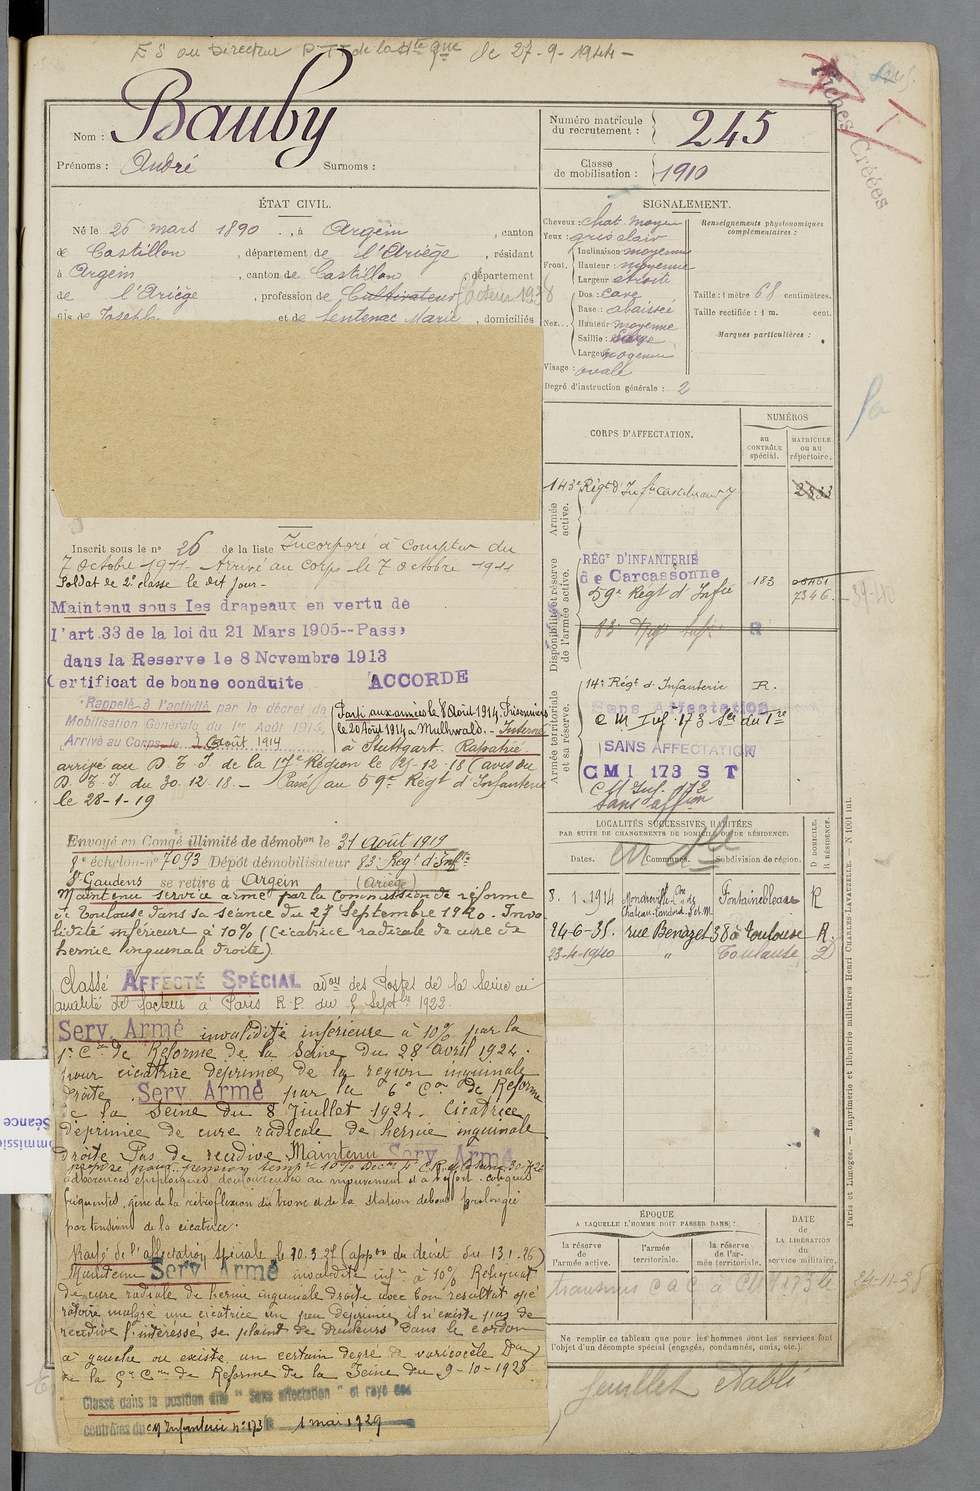 E S au Directeur P.T.T de la Hte Gne de 27-9-1944-
Fiches Créées
Nom : Bauby
Prénoms : André Surnoms :
Numéro matricule
du recrutement : 245
Classe
de mobilisation : 1910
ÉTAT CIVIL.
Né le 26 mars 1890 , à Argein , canton
de Castillon , département de l'Ariège , résidant
à Argein , canton de Castillon , département
de l'Ariège , profession de Cultivateur facteur 1938
fils de Joseph et de Sentenac Marie , domiciliés
SIGNALEMENT.
Cheveux : chat. moyen
Yeux : gris clair
Front. Inclinaison moyenne
Hauteur : moyenne
Largeur étroite
Nez... Dos : cave
Base : abaissé
Hauteur moyenne
Saillie : large
Largeur moyenne
Visage : ovale
Degré d'instruction générale : 2
Renseignements physionomiques
complémentaires :
Taille : 1 mètre 68 centimètres.
Taille rectifiée : 1 m. cent.
Marques particulières :
CORPS D'AFFECTATION.
NUMÉROS
au
CONTRÔLE
spécial.
MATRICULE
ou au
répertoire.
Armée
active.
143e Régt d'Inf. Castelnaudary
2833
Disponibilité et réserve
de l'armée active.
RÉGt D'INFANTERIE
de Carcassonne
59e Régt d'Infie 183
7346
39-40
83e Régt Inf. R
Armée territoriale
et sa réserve.
14e Régt d'Infanterie R.
Sans Affectation
C M Inf. 173 Son du Tre
SANS AFFECTATION
C M I 173 S T
C M Inf. 173
Sans affon
Inscrit sous le n° 26 de la liste Incorporé à compter du
7 octobre 1911 - Arrivé au corps le 7 octobre 1911
Soldat de 2e classe le dit jour -
Maintenu sous les drapeaux en vertu de
l'art. 33 de la loi du 21 Mars 1905--Passé
dans la Reserve le 8 Novembre 1913
Certificat de bonne conduite ACCORDE
Rappelé à l'activité par le décret de
Mobilisation Générale du 1er Août 1914,
Arrivé au Corps le 3 août 1914
Parti aux armées le 8 août 1914. Prisonnier
le 20 août 1914 à Mulhwald. - Interné
à Stuttgart. Rapatrié.
arrivé au D. T. I. de la 17e Région le 21-12-18 (avis du
D. T. I. du 30.12.18. - Passé au 59e Régt d'Infanterie
le 28-1-19
Envoyé en Congé illimité de démobon le 31 août 1919
8e échelon-n° 7093 Dépôt démobilisateur 83e Régt d'Infie
St Gaudens se retire à Argein (Ariège)
Maintenu service armé par la commission de réforme
de Toulouse dans sa séance du 27 Septembre 1920. Inva
lidité inférieure à 10% (Cicatrice radicale de cure de
hernie inguinale droite).
classé AFFECTÉ SPÉCIAL adon des Postes de la Seine en
qualité de facteur à Paris R.P. du 5 Septbre 1922.
Serv Armé invalidité inférieure à 10% par la
1e Con de Réforme de la Seine du 28 avril 1924.
pour cicatrice déprimée de la région inguinale
droite. Serv Armé par la 6e Con de Réforme
de la Seine du 8 Juillet 1924. Cicatrice
déprimée de cure radicale de hernie inguinale
droite Pas de récidive Maintenu Serv Armé
adhérences épiploïques, douloureuses au mouvement et à l'effort. coliques
fréquentes, gêne de la rétroflexion du tronc et de la station debout prolongée
par tension de la cicatrice.
Rayé de l'affectation spéciale le 10.3.27 (appon du décret du 13.1.26)
Maintenu Serv Armé invalidité infre à 10% Reliquat
de cure radicale de hernie inguinale droite avec bon résultat opé
ratoire malgré une cicatrice un peu déprimée, il n'existe pas de
récidive l'intéressé se plaint de douleurs dans le cordon
à gauche où existe un certain degré de varicocèle Don
de la 5e Con de Réforme de la Seine du 9-10-1928
Classé dans la position dite "Sans affectation" et rayé des
contrôles du CM Infanterie n°173 le 1 mai 1929
LOCALITÉS SUCCESSIVES HABITÉES
PAR SUITE DE CHANGEMENTS DE DOMICILE OU DE RÉSIDENCE.
Dates. Communes. Subdivision de région. D DOMICILE. R RÉSIDENCE.
8.1.1914 Mondreville Con de Chateau-Landon S.et M. Fontainebleau R
24-6-35. rue Benazet 38 à Toulouse R.
23-4-1940 " Toulouse D
ÉPOQUE
A LAQUELLE L'HOMME DOIT PASSER DANS :
la réserve
de
l'armée active.
l'armée
territoriale.
la réserve
de l'ar-
mée territoriale.
DATE
de
LA LIBÉRATION
du
service militaire.
24-11-38
Ne remplir ce tableau que pour les hommes dont les services font
l'objet d'un décompte spécial (engagés, condamnés, omis, etc.).
feuillet établi
Paris et Limoges. — Imprimerie et librairie militaires Henri CHARLES-LAVAUZELLE. — N 1001 int.